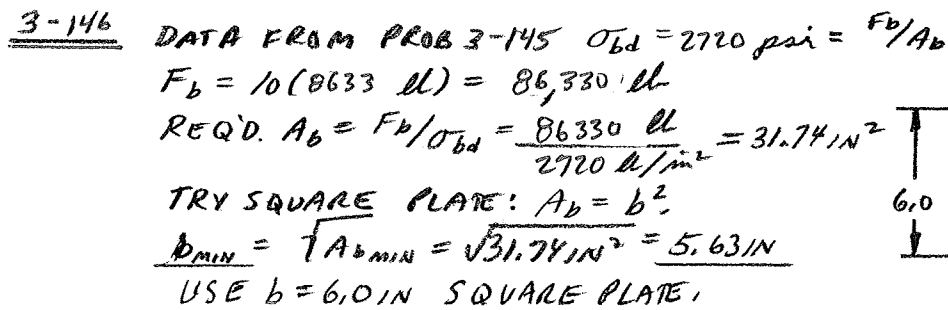 3-146 DATA FROM PROB 3-145 σbd = 2720 psi = Fb/Ab
Fb = 10(8633 lb) = 86,330 lb
REQ'D. Ab = Fb/σbd = 86330 lb / 2720 lb/in² = 31.74 IN²
TRY SQUARE PLATE: Ab = b².
6.0
bMIN = √AbMIN = √31.74 IN² = 5.63 IN
USE b = 6.0 IN SQUARE PLATE.